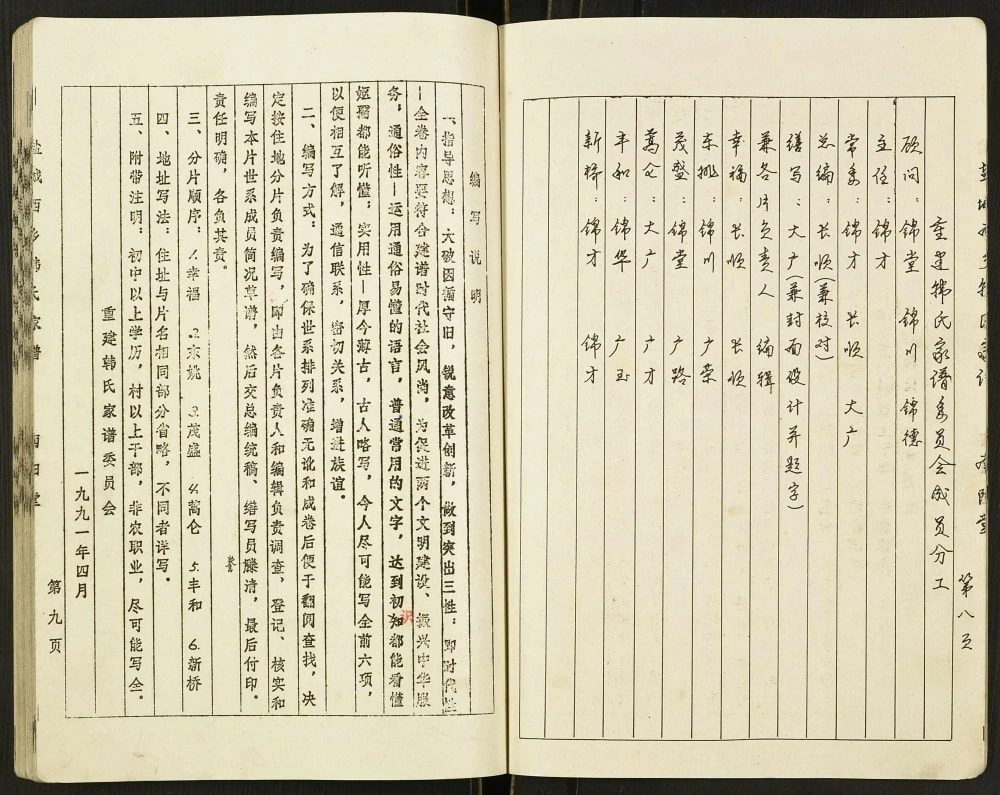 重建韩氏家谱委员会成员分工
顾问：锦堂 锦川 锦德
主任：锦才
常委：锦才 长顺 大广
总编：长顺（兼校对）
缮写：大广（兼封面设计并题字）
兼各片负责人 编辑
幸福：长顺 长顺
东姚：锦川 广荣
茂盛：锦堂 广路
蒿仑：大广 广才
丰和：锦华 广玉
新桥：锦才 锦才
第八页
编写说明
一、指导思想：大破因循守旧，锐意改革创新，做到突出三性：即时代性
—全卷内容要符合建谱时代社会风尚，为促进两个文明建设、振兴中华服
务，通俗性—运用通俗易懂的语言，普通常用的文字，达到初知都能看懂
识
妪孺都能听懂；实用性—厚今薄古，古人略写，今人尽可能写全前六项，
以便相互了解，通信联系，密切关系，增进族谊。
二、编写方式：为了确保世系排列准确无讹和成卷后便于翻阅查找，决
定按住地分片负责编写，即由各片负责人和编辑负责调查，登记、核实和
编写本片世系成员简况草谱，然后交总编统稿、缮写员誊清，最后付印。
责任明确，各负其责。
三、分片顺序：1.幸福 2.东姚 3.茂盛 4.蒿仑 5.丰和 6.新桥
四、地址写法：住址与片名相同部分省略，不同者详写。
五、附带注明：初中以上学历，村以上干部，非农职业，尽可能写全。
重建韩氏家谱委员会
一九九一年四月
第九页
盐城西乡韩氏家谱 南阳堂